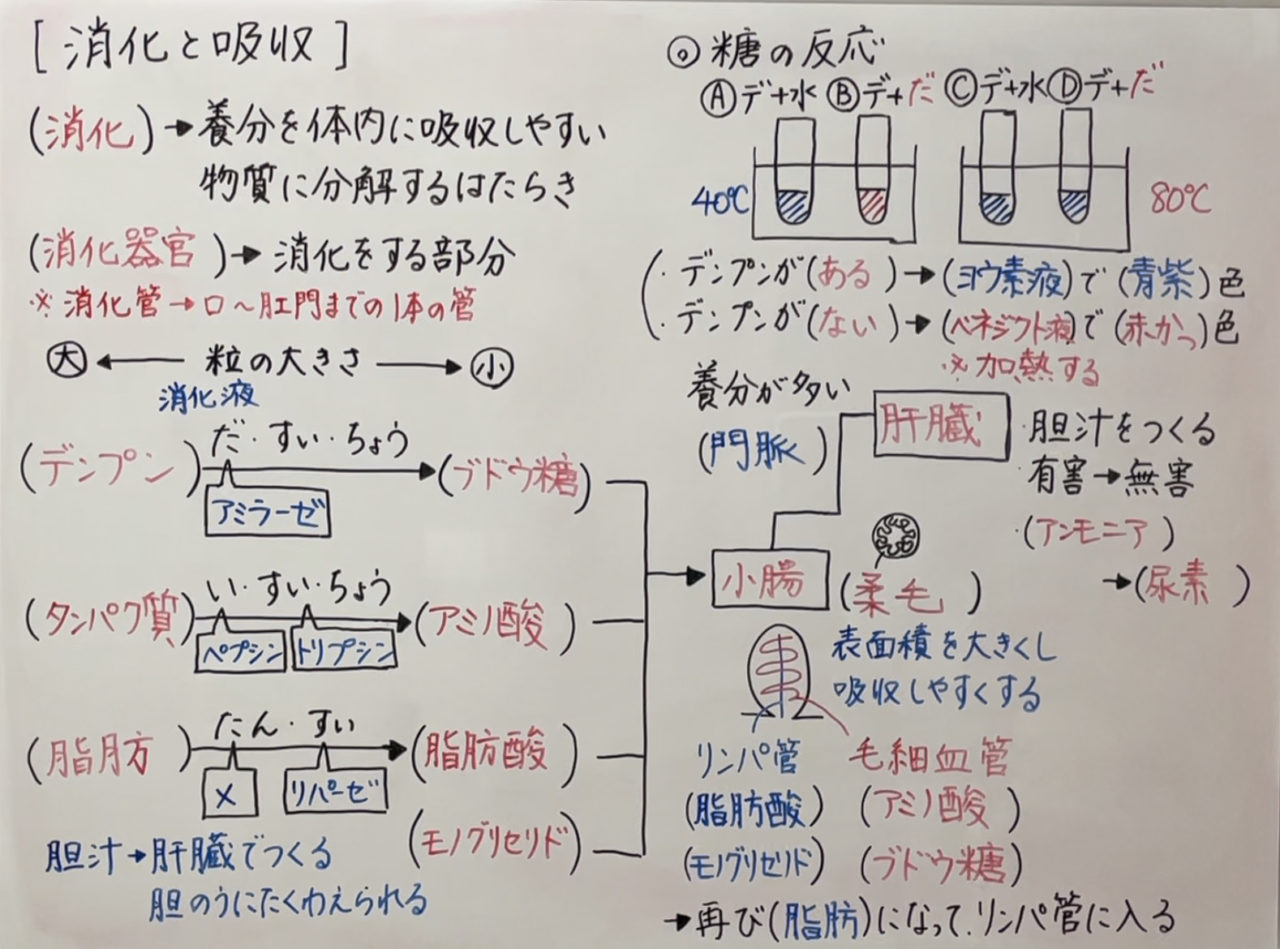 [消化と吸収]
(消化)→養分を体内に吸収しやすい
物質に分解するはたらき
(消化器官)→消化をする部分
※消化管→口～肛門までの1本の管
大←粒の大きさ→小
消化液
(デンプン) だ・すい・ちょう→(ブドウ糖)
アミラーゼ
(タンパク質) い・すい・ちょう→(アミノ酸)
ペプシン トリプシン
(脂肪) たん・すい→(脂肪酸)
× リパーゼ
(モノグリセリド)
胆汁→肝臓でつくる
胆のうにたくわえられる
◎糖の反応
Ⓐデ+水 Ⓑデ+だ Ⓒデ+水 Ⓓデ+だ
40℃ 80℃
・デンプンが(ある)→(ヨウ素液)で(青紫)色
・デンプンが(ない)→(ベネジクト液)で(赤かっ)色
※加熱する
養分が多い
(門脈)
肝臓
・胆汁をつくる
・有害→無害
(アンモニア)
→(尿素)
小腸 (柔毛)
表面積を大きくし
吸収しやすくする
リンパ管 毛細血管
(脂肪酸) (アミノ酸)
(モノグリセリド) (ブドウ糖)
→再び(脂肪)になって.リンパ管に入る